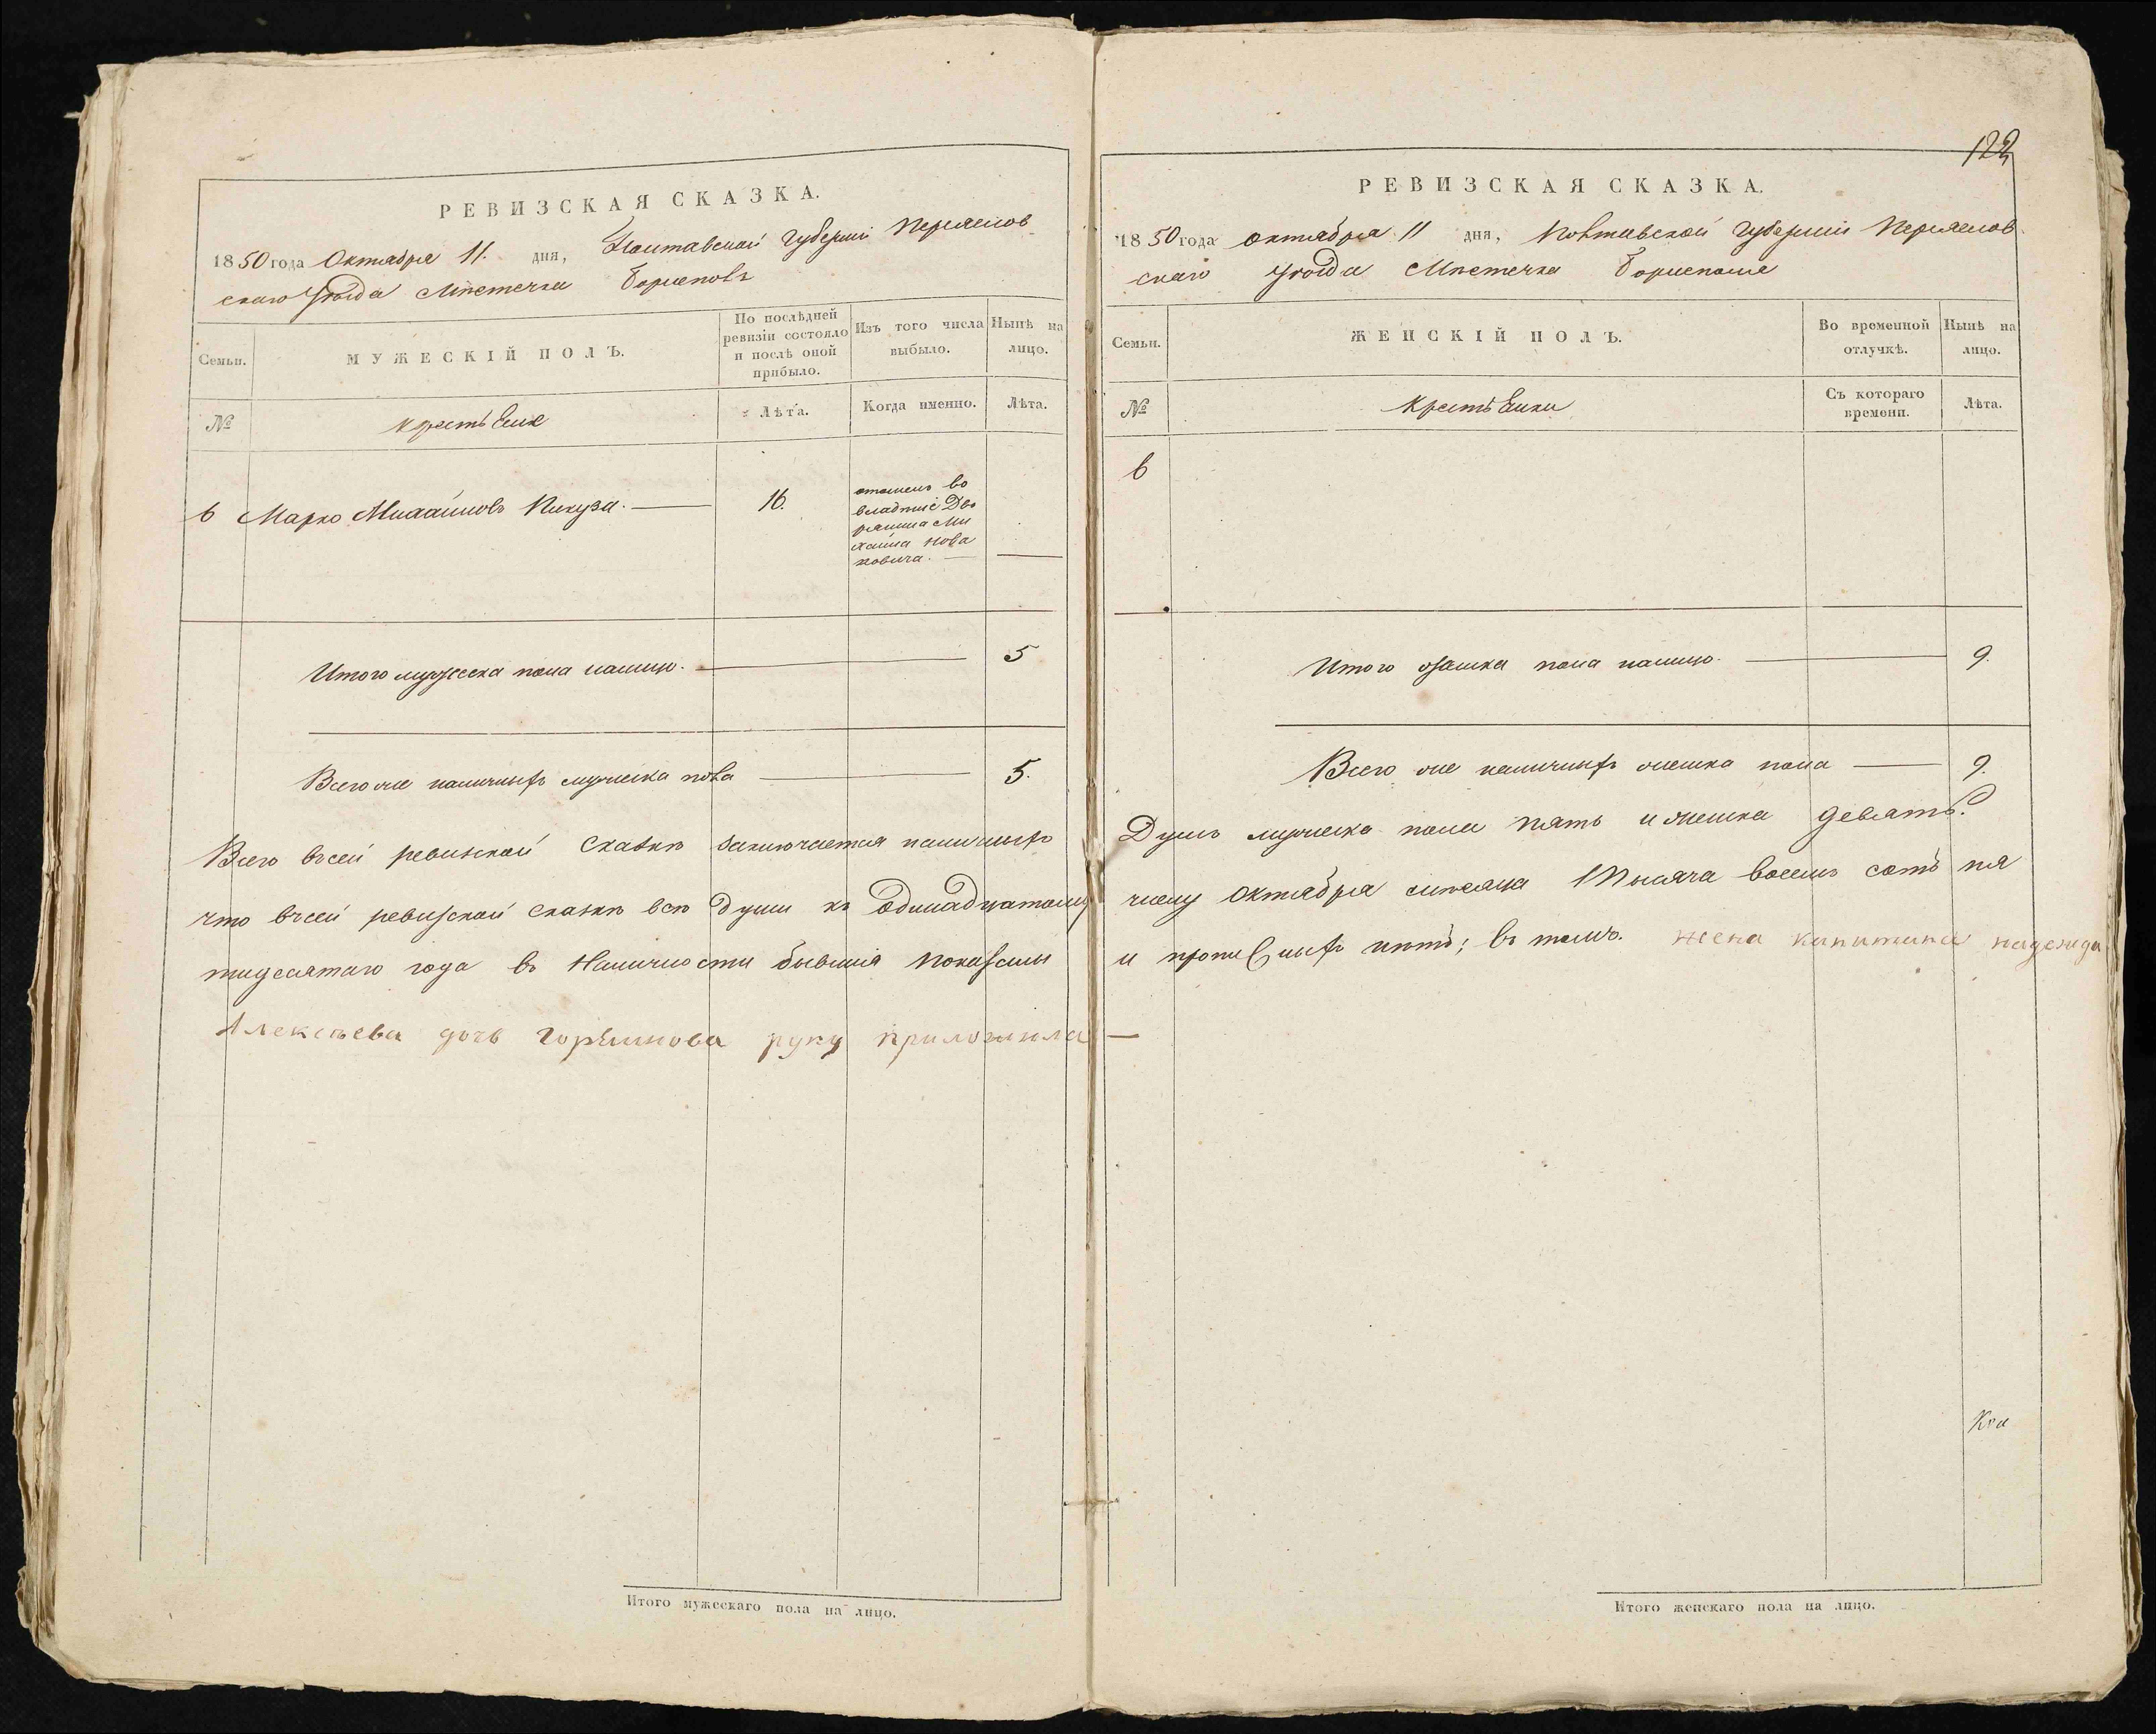 РЕВИЗСКАЯ СКАЗКА.
1850 года Октября 11. дня, Полтавской Губерніи Переяслов
скаго Уѣзда Мѣстечка Борисполь
Семьи.
МУЖЕСКІЙ ПОЛЪ.
По послѣдней ревизіи состояло и послѣ оной прибыло.
Изъ того числа выбыло.
Нынѣ на лицо.
№
крестьяне
Лѣта.
Когда именно.
Лѣта.
6 Марко Михайловъ 16.
во
владѣніе Дво
рянина Ми
хаила Нова
ковича.
Итого мужеска пола налицо. 5
Всего же наличныхъ мужеска пола 5.
Всего въ сей ревизской сказкѣ заключается наличныхъ
что въ сей ревизской сказкѣ всѣ души къ одинадцатому
тидесятаго года въ Наличности бывшія показаны
Алексѣева дочь руку приложила —
Итого мужескаго пола на лицо.
122
РЕВИЗСКАЯ СКАЗКА.
1850 года октября 11 дня, Полтавской Губерніи Переяслов
скаго Уѣзда Мѣстечка Борисполя
Семьи.
ЖЕНСКІЙ ПОЛЪ.
Во временной отлучкѣ.
Нынѣ на лицо.
№
Крестьянки
Съ котораго времени.
Лѣта.
6
Итого женска пола налицо. 9.
Всего же наличныхъ женска пола 9.
Душъ мужеска пола пять и женска девять.
числу Октября мѣсяца Тысяча восемь сотъ пя
и прописныхъ нѣтъ; въ томъ. жена капитана надежда
Итого женскаго пола на лицо.